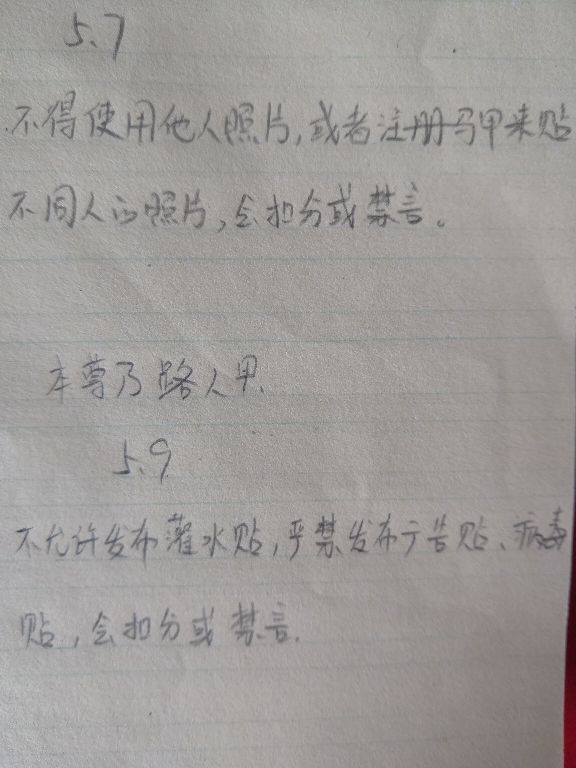 5.7
不得使用他人照片,或者注册马甲来贴
不同人的照片,会扣分或禁言。
本尊乃路人甲.
5.9
不允许发布灌水贴,严禁发布广告贴、病毒
贴,会扣分或禁言.